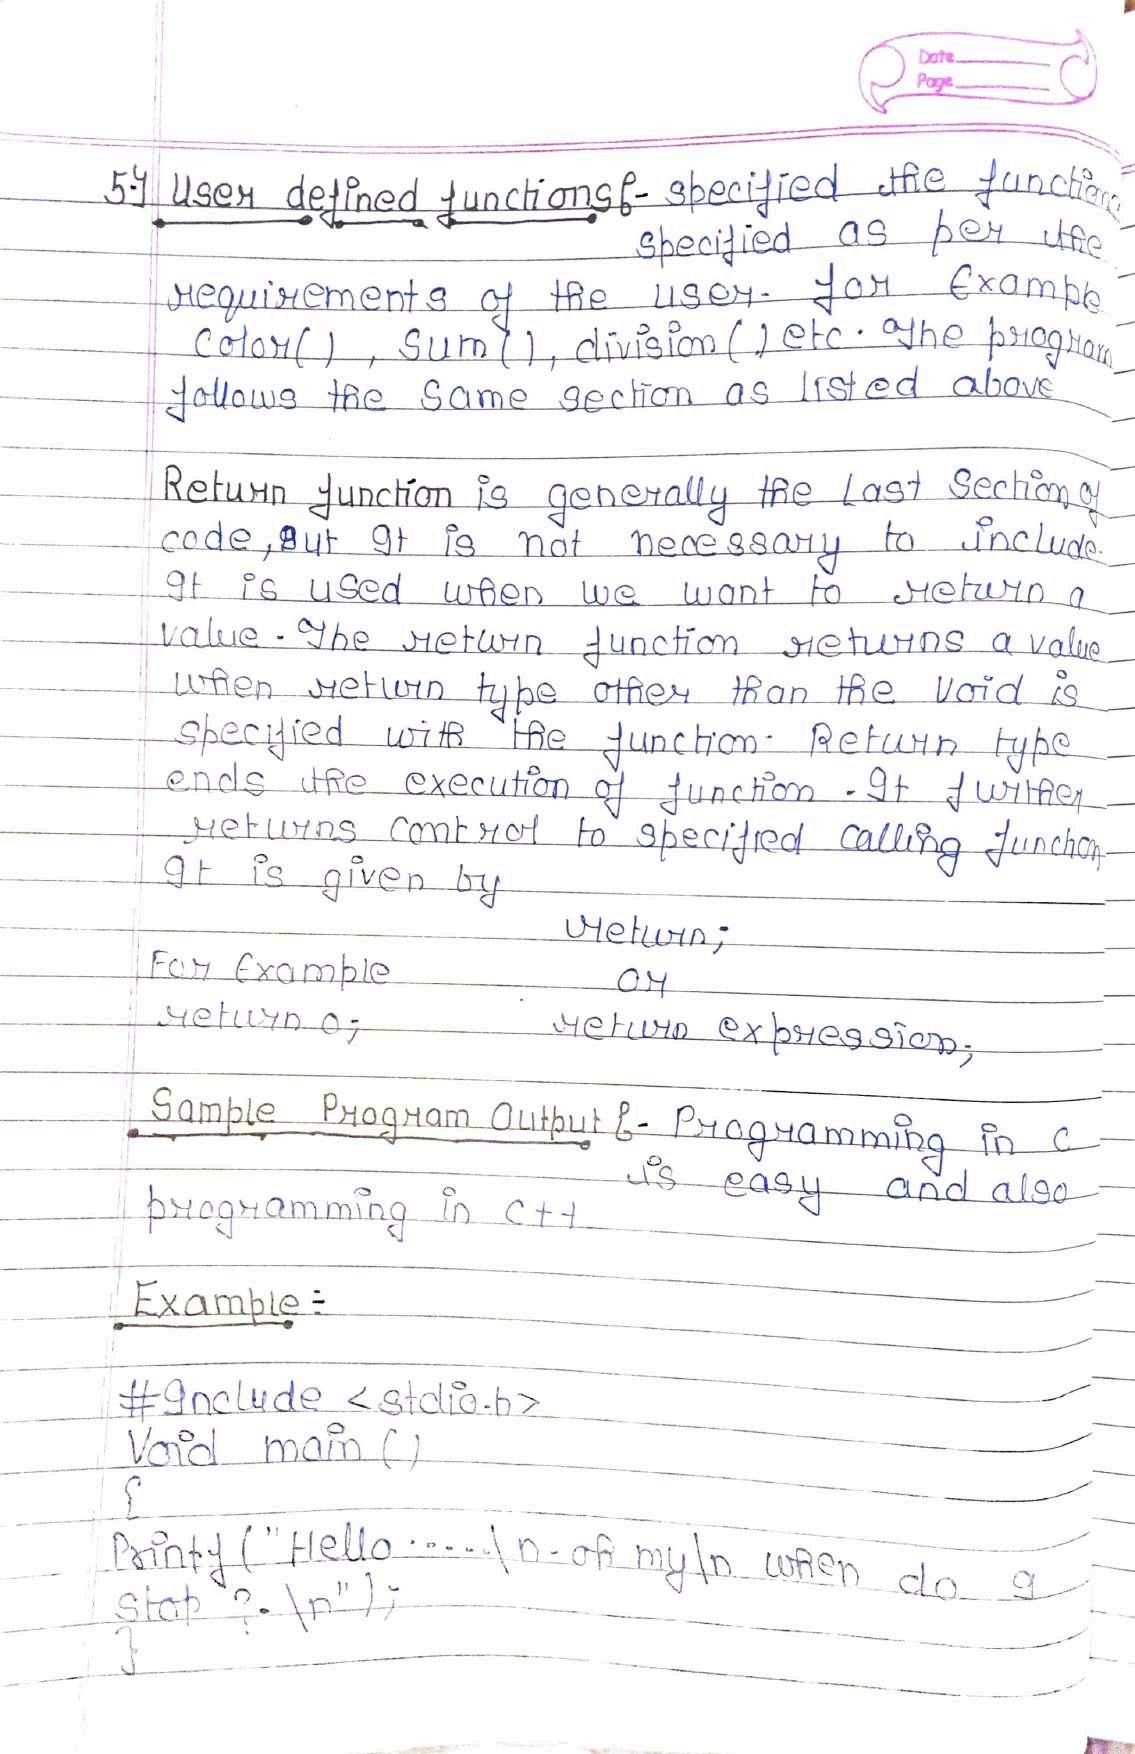 Date
Page
5-y User defined functions:- specified the functions
specified as per the
requirements of the user. for Example
Color(), Sum(), division() etc. The program
follows the same section as listed above
Return function is generally the Last Section of
code, But It is not necessary to include.
It is used when we want to return a
value. The return function returns a value
when return type other than the void is
specified with the function. Return type
ends the execution of function. It further
returns control to specified calling function
It is given by
return;
For Example
or
return 0;
return expression;
Sample Program Output:- Programming in C
is easy and also
programming in C++
Example:-
#Include <stdio.h>
Void main()
{
Printf("Hello.....\n-oh my\n when do I
Stop ?.\n");
}